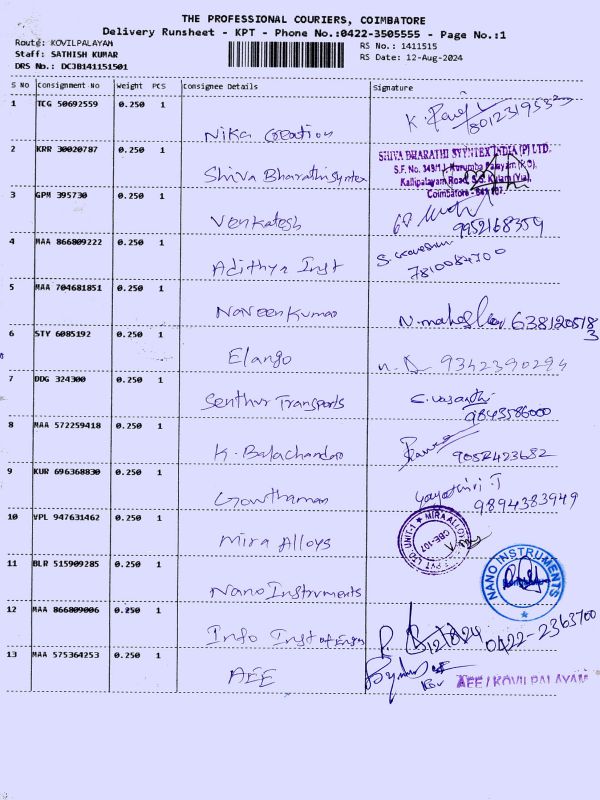 THE PROFESSIONAL COURIERS, COIMBATORE
Delivery Runsheet - KPT - Phone No.:0422-3505555 - Page No.:1
Route: KOVILPALAYAM
RS No.: 1411515
Staff: SATHISH KUMAR
RS Date: 12-Aug-2024
DRS No.: DCJB141151501
S No Consignment No Weight PCS Consignee Details Signature
1 TCG 50692559 0.250 1 Nika Creation 8012319532
2 KRR 30020787 0.250 1 Shiva Bharathi Syntex
SHIVA BHARATHI SYNTEX INDIA (P) LTD.
S.F. No. 349/1, Kurumba Palayam (P.O),
Kallipalayam Road, S.S. Kulam (Via),
Coimbatore - 641 107.
3 GPM 395730 0.250 1 Venkatesh 9952168354
4 MAA 866809222 0.250 1 Adithya Inst 7810084700
5 MAA 704681851 0.250 1 Naveen Kumar 6381205183
6 STY 6085192 0.250 1 Elango 9342390294
7 DDG 324300 0.250 1 Senthur Transports C. Vasanthi
9843586000
8 MAA 572259418 0.250 1 K. Balachandar 9052423682
9 KUR 696368830 0.250 1 Gowthaman Gayathiri . T
9894383949
10 VPL 947631462 0.250 1 Mira Alloys
MIRA ALLOYS PVT LTD. UNIT-1
CBE-107
11 BLR 515909285 0.250 1 Nano Instruments
NANO INSTRUMENTS
12 MAA 866809006 0.250 1 Info Inst of Engg 12/8/24 0422-2363700
13 MAA 575364253 0.250 1 AEE
AEE / KOVILPALAYAM